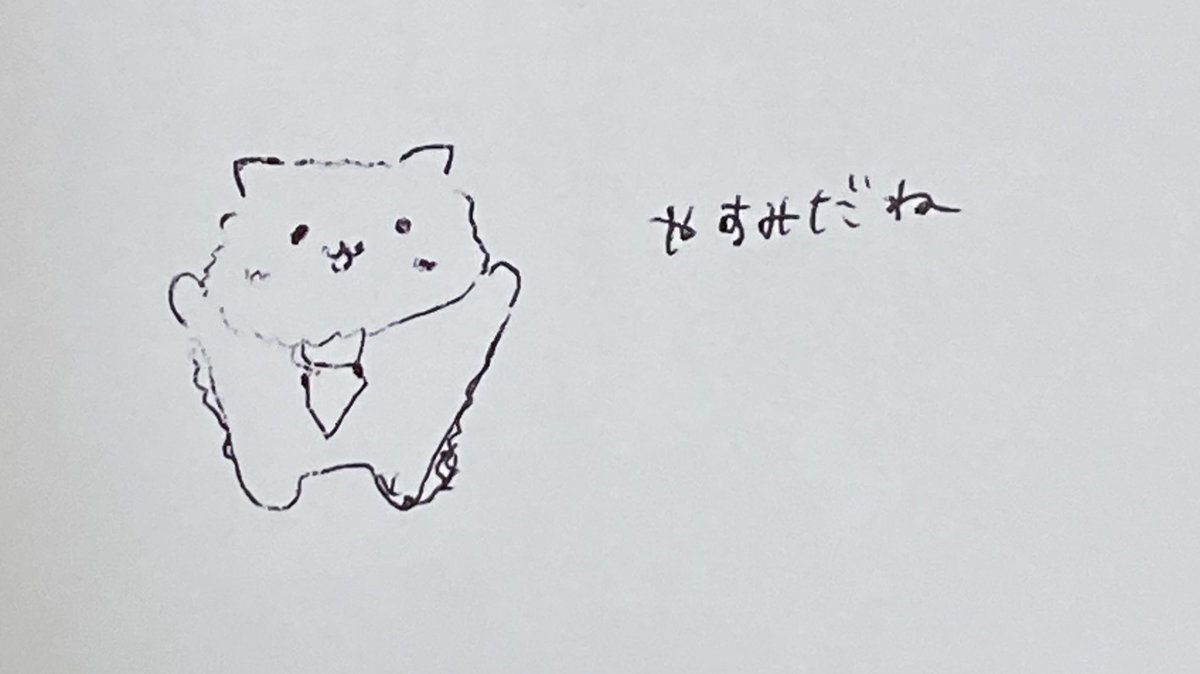 やすみだね